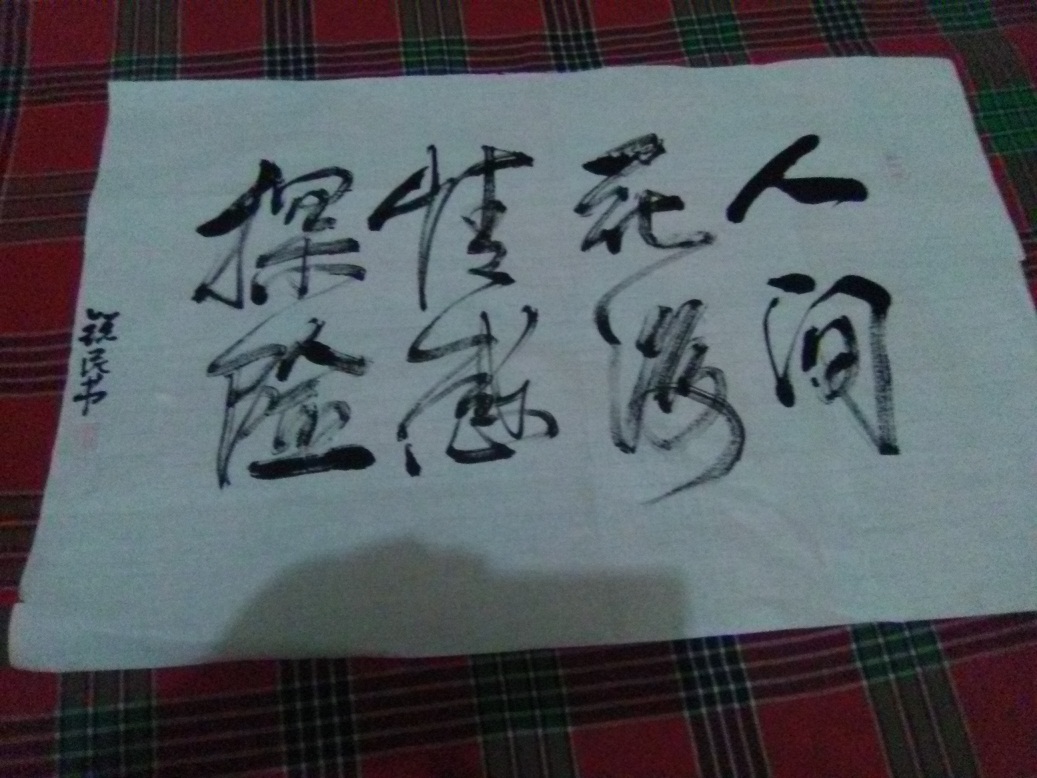 人间
花海
情感
探险
民书